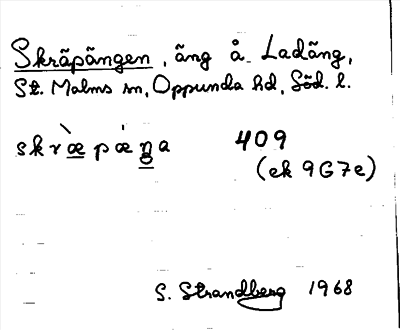 Skräpängen, äng å Ladäng,
St. Malms sn, Oppunda hd, Söd. l.
skr̀æpǽŋa 409
(ek 9G7e)
S. Strandberg 1968